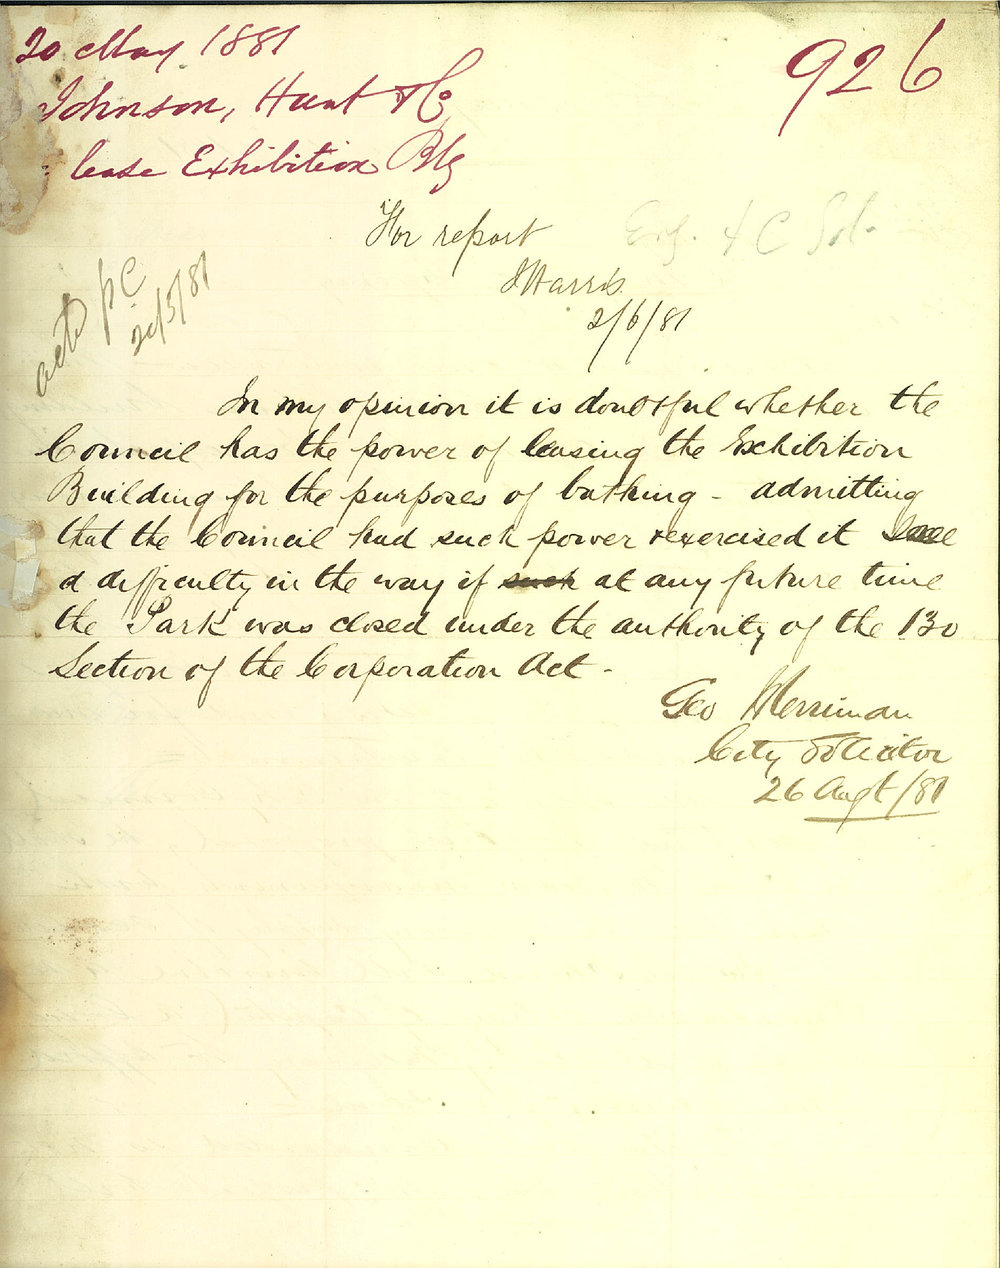 20 May 1881
926
Johnson, Hunt & Co
lease Exhibition Blg
For report
Eng. & C Sol.
J Harris
2/6/81
ackd p C
20/5/81
In my opinion it is doubtful whether the
Council has the power of leasing the Exhibition
Building for the purposes of bathing - admitting
that the Council had such power & exercised it I see
a difficulty in the way if such at any future time
the Park was closed under the authority of the 130
Section of the Corporation Act -
Geo Merriman
City Solicitor
26 Augt/81